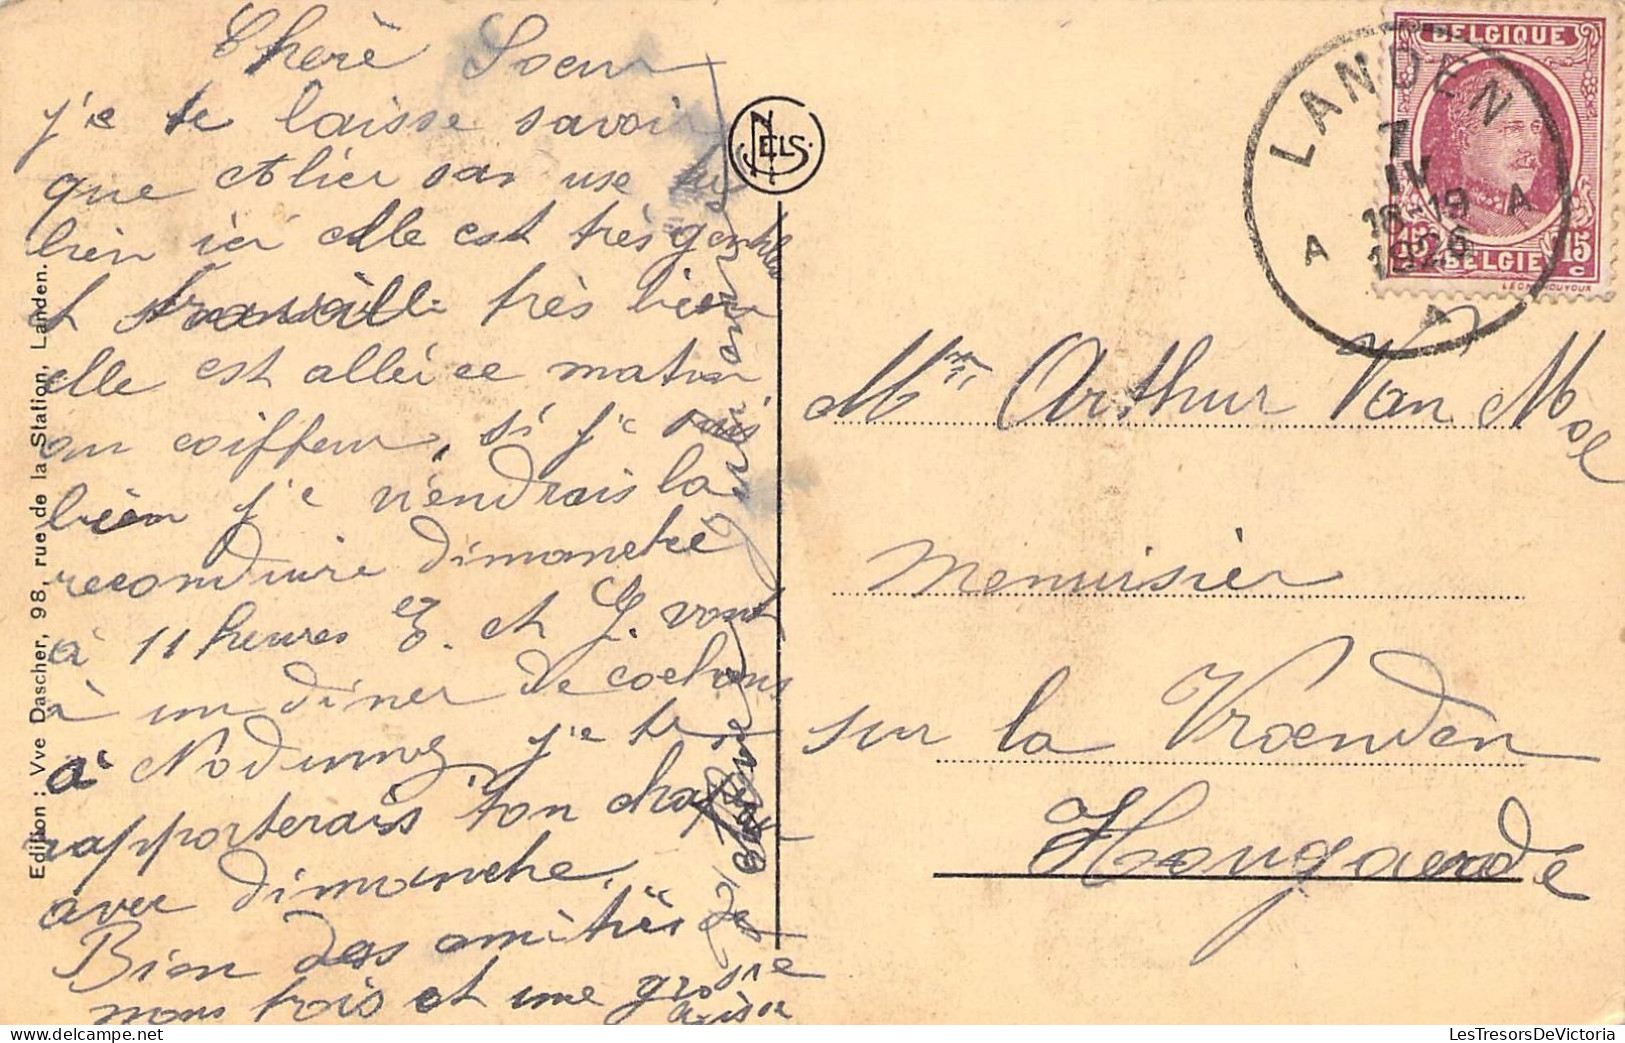 Chère Soeur
j'e te laisse savoir
que
bien ici elle est très gentille
et travaille très bien
elle est allée ce matin
au coiffeur, si j'e suis
bien j'e viendrais la
reconduire dimanche
à 11 heures et G. vont
à un diner de cochons
à Noduwez, j'e te
rapporterais ton chapeau
avec dimanche.
Bien des amitiés de
nous trois et une grosse
Edition : Vve Dascher, 98, rue de la Station, Landen.
NELS
BELGIQUE
LANDEN
7
IV
18-19
1926
A A
A
15 15
c
BELGIE
Mme Arthur Van Mol
Menuisier
sur la Vroenden
Hougaerde
LesTresorsDeVictoria.com